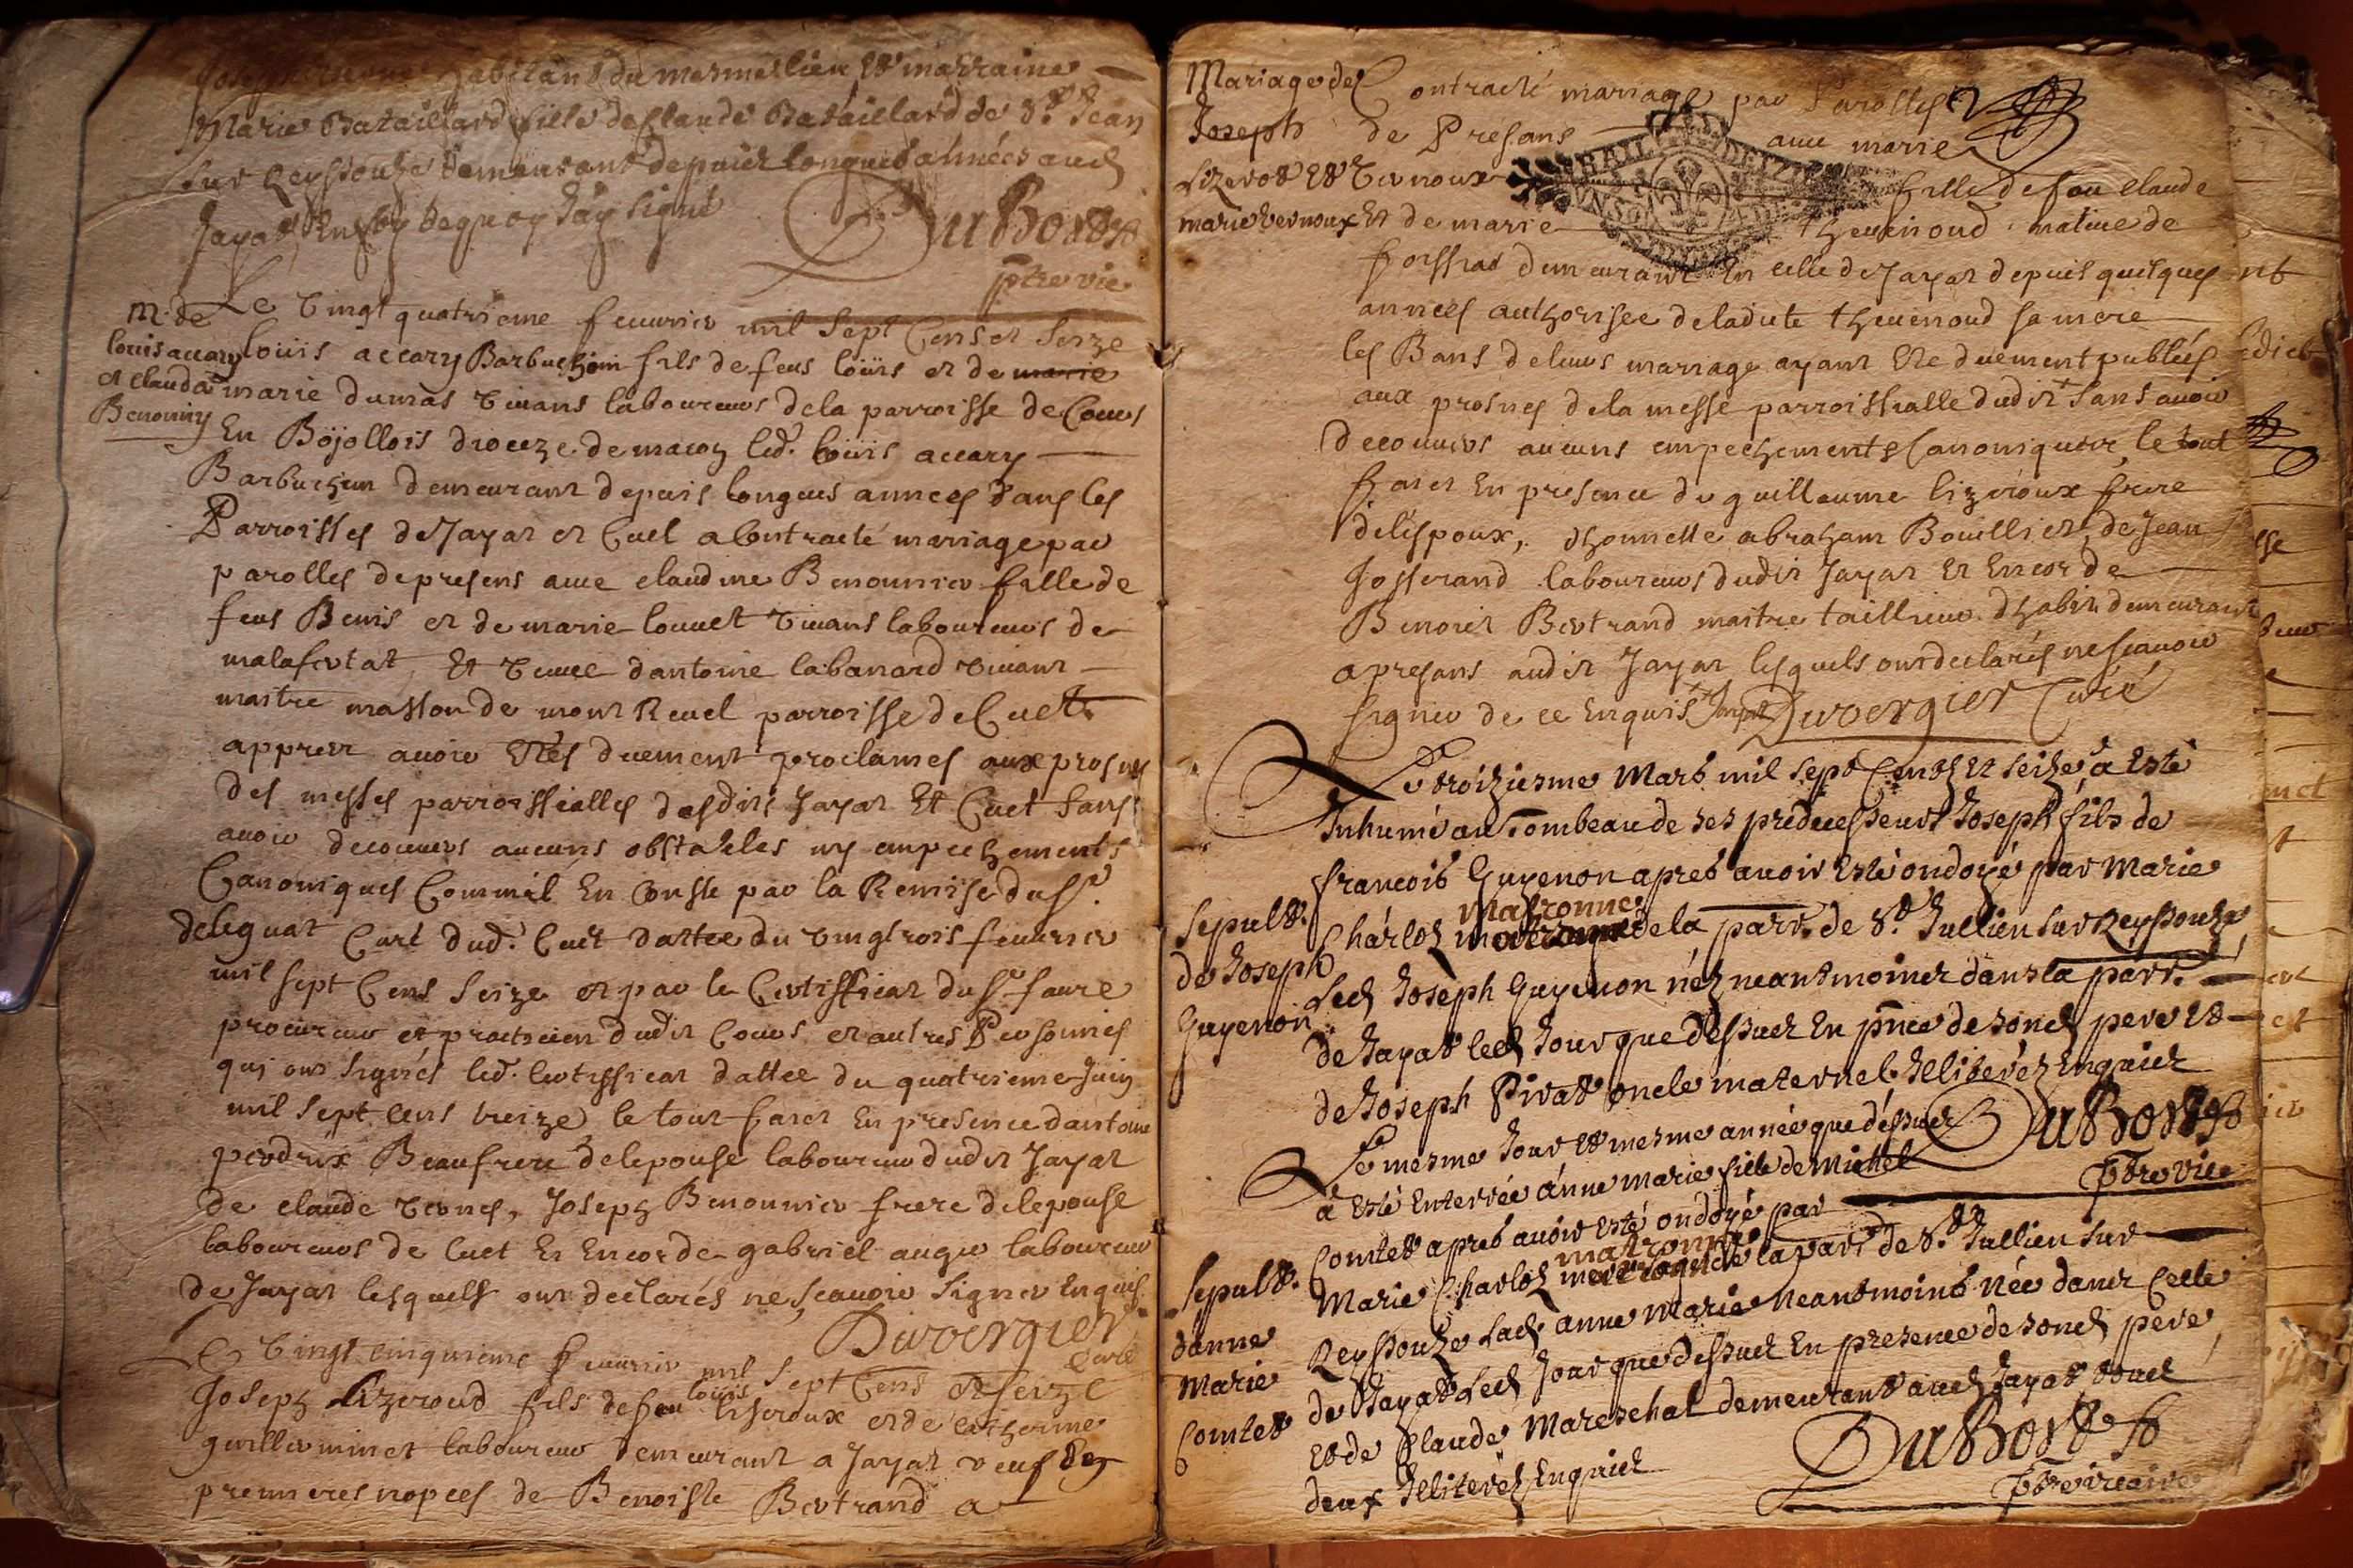 habitant du mesme lieu et marraine
Marie Bataillard fille de Claude Bataillard de St. Jean
sur Reyssouze demeurant depuis longues années aud
Jayat En foy dequoy J'ay signé DuBost
ptre vic
M. de Louis accary et claudá Benonny
Le vingt quatrieme feuurier mil sept Cens et seize
loüis accary Barbuchon fils de feus loüis et de marie
marie dumas viuans laboureurs dela parroisse de Cours
En Bojollois dioceze de macon led. loüis accary
Barbuchon demeurant depuis longues années dans les
Parroisses de Jayat et Cuet a Contracté mariage par
parolles de presens auec claudine Benonnier fille de
feus Benis et de marie louuet viuans laboureurs de
malafertat, Et veuue dantoine labanard viuant
maitre masson de mont Reuel parroisse de Cuet
appres auoir Etés duement proclamés aux prosnes
des messes parroissialles desdits Jayat Et Cuet sans
auoir decouuers aucuns obstacles ny empechements
Canoniques Comme il En Conste par la Remise du Sr
deleguat Curé dud. Cuet dattee du vingtrois feuurier
mil sept Cens seize et par le Certifficat du Sr faure
procureur et practicien dudit Cours et autres Personnes
qui ont signés led. Certifficat dattee du quatrieme Juin
mil sept cens treize le tout fait En presence dantoine
perdrix Beaufrere delepouse laboureur dudit Jayat
de claude vernes, Joseph Benonnier frere delepouse
laboureurs de Cuet Et Encor de gabriel augu laboureur
de Jayat lesquels ont declarés ne scauoir signer Enquis.
Duvergier
Curé
Le vingt cinquieme feuurier mil sept Cens Et seize
Joseph Lizeroud fils de feu louis liseroux et de catherine
guilleminet laboureur demeurant a Jayat veuf des
premieres nopces de Benoiste Bertrand a
Mariage de Joseph Lizerot et marie vernoux
Contracté mariage par Parolles
de Presans auec marie
Vernoux fille de feu claude
Et de marie theuenoud natiue de
foissiat demeurant En celle de Jayat depuis quelques
années authorisee de ladite theuenoud sa mere
les Bans de leurs mariage ayant Ete duement publiés
aux prosnes dela messe parroissialle dudit sans auoir
decouuers aucuns empechements Canoniques, le tout
fait En presence de guillaume lizeroux frere
delespoux, dhonneste abraham Bouillier, de Jean
Josserand laboureurs dudit Jayat Et Encor de
Benoit Bertrand maitre tailleur dhabit demeurant
a presans audit Jayat lesquels ont declarés ne scauoir
signer de ce Enquis Duvergier Curé
Sepult. de Joseph Guyenon
Le troiziesme Mars mil sept Cents Et seize a Esté
Inhumé au Tombeau de ses prédecesseurs Joseph fils de
francois Guyenon apres auoir Esté ondoyé par Marie
Charlos matronne de la parr. de St. Jullien sur Reyssouze
Led Joseph Guyenon néz neantmoins dans la parr.
de Jayat led Jour que dessus En pnce de sond pere et
de Joseph Pivat oncle maternel Illiterés Enquis
DuBost
ptre vic
Sepult. d'anne Marie Comtet
Le mesme Jour et mesme année que déssus
a Esté Enterrée anne marie fille de Michel
Comtet apres auoir Esté ondoyé par
Marie Charlos matronne de la parr. de St. Jullien sur
Reyssouze Lad anne Marie neantmoins née dans Celle
de Jayat Led Jour que dessus En presence de sond pere
et de Claude Mareschal demeurant aud Jayat tous
deux Illiterés Enquis
DuBost
ptre vicaire